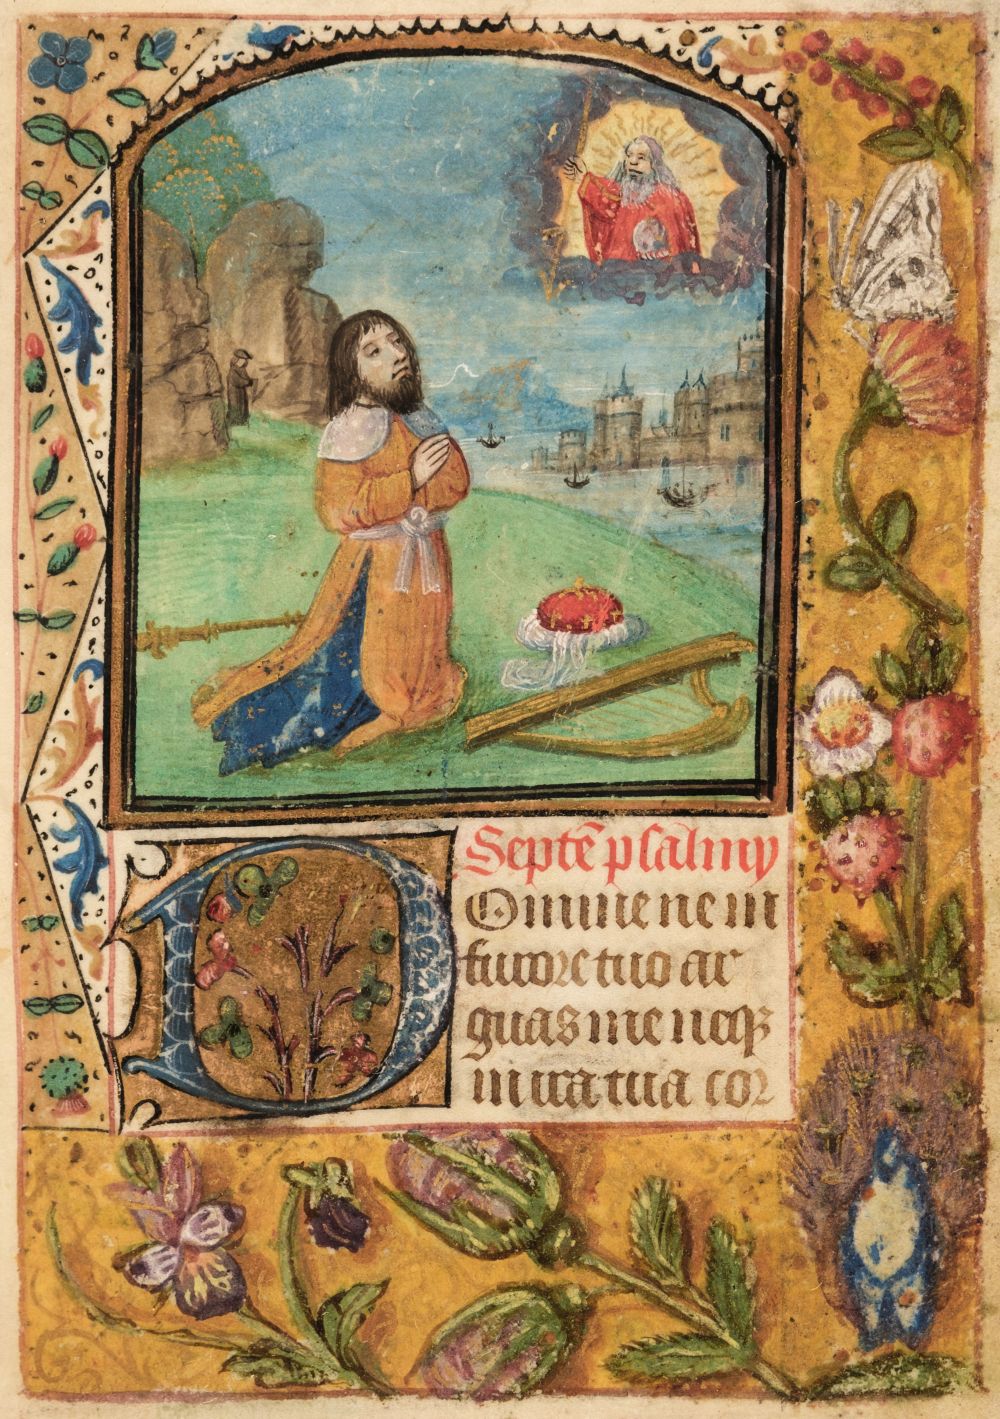 Septē psalmy
Domine ne in
furore tuo ar
guas me neqȝ
in ira tua cor